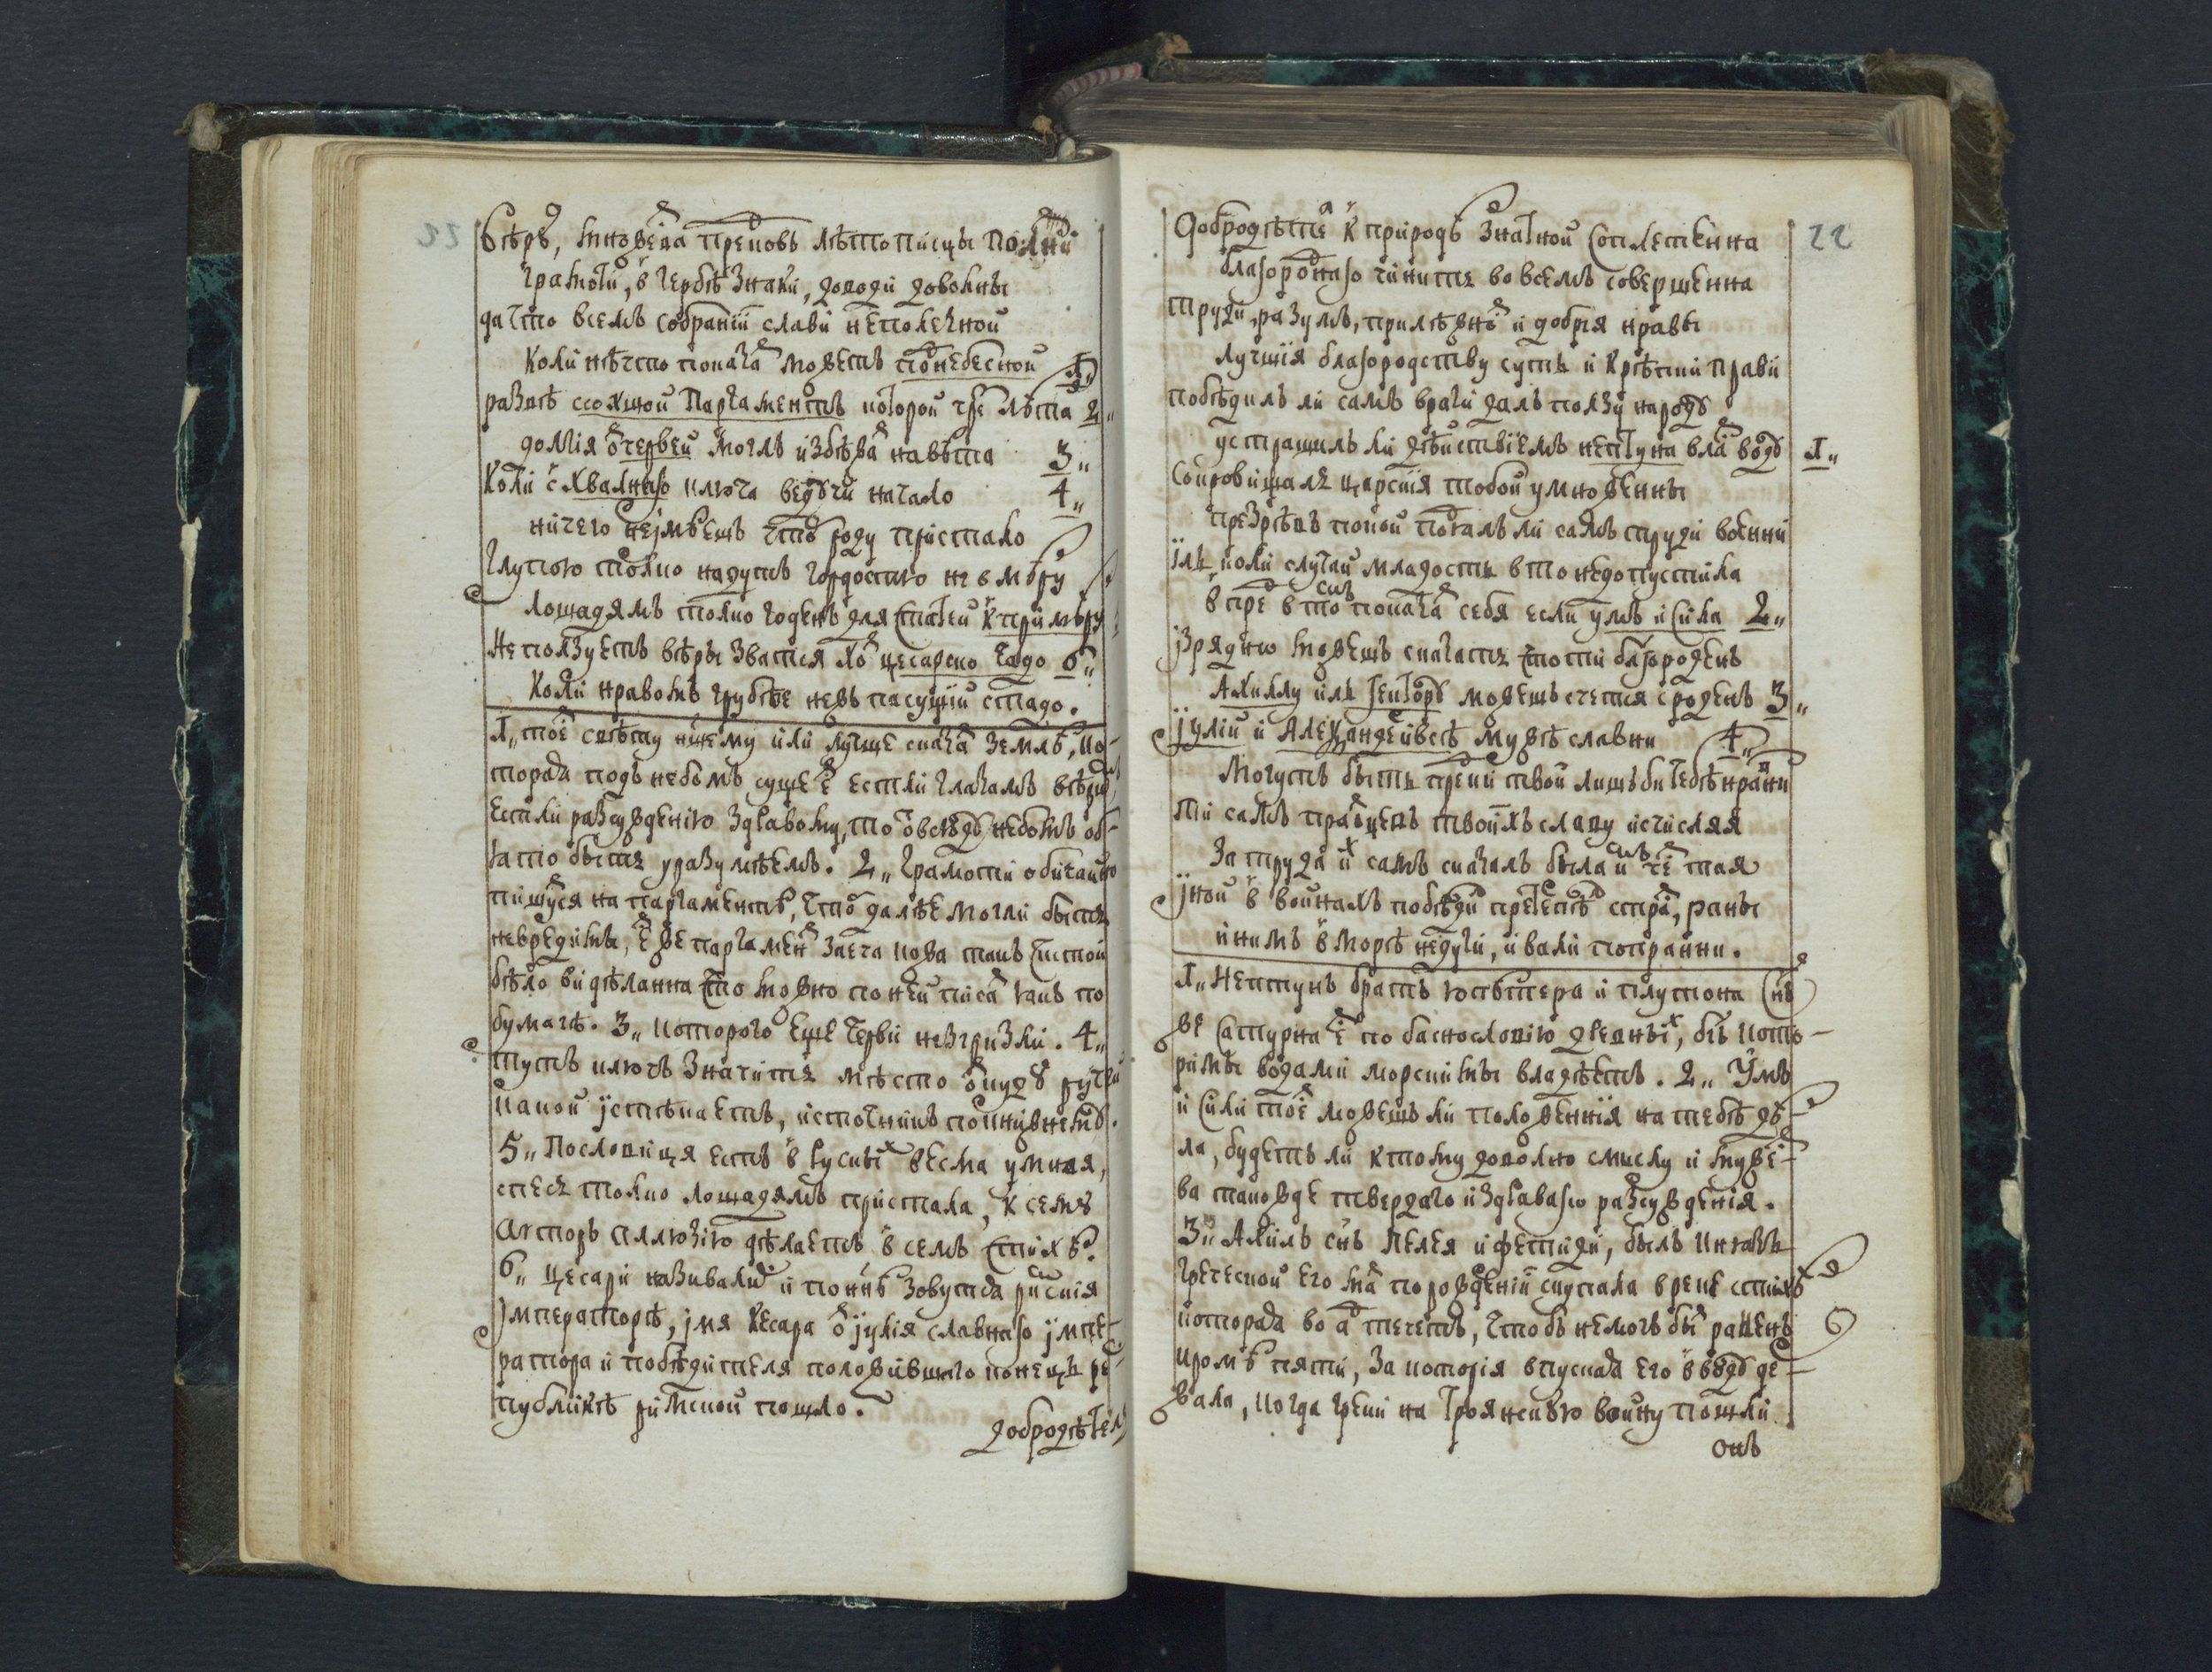 вѣрѣ, множества предковъ лѣтописцы полни
грамоти, в гербѣ знаки, доводи довольны
да что всемъ собраніи слави неполезной
коли нѣчто показа можетъ поднебесной 1„
развѣ ссохшой паргаментъ которой чрез лѣта 2„
домія от червей моглъ избѣжа навѣта 3„
Коли с хвалнаго ключа ведучи начало 4„
ничего неімѣешъ что б роду пристало
глупою толко надутъ гордостію не в мѣру
лошадямъ толко годенъ для статей к примѣру
Не ползуетъ вѣры звatся хо цесарско чадо 6„
коли нравомъ грубѣе невъ пасущій стадо.
1„ тое свѣту
торая подъ небомъ суще естли глазамъ вѣри
естли разсужденію здравому, то
бытъ уразумѣемъ. 2„ грамоти обичайно
пишутся на паргаментѣ, чтоб далѣе могли быть
невредимы, паргамен заечa кожа такъ чистой
бѣло видѣланна что можно по ней писа какъ по
бумагѣ. 3„ которого еще черви незгризли. 4„
тутъ ключъ значитъ мѣсто откуду ручей
какой истѣкаетъ, источникъ
5„ Пословица естъ в рускихъ весма умная,
спесь толко лошадямъ пристала, к сему
авторъ аллюзію дѣлаетъ в семъ стихѣ.
6„ цесари називали и понинѣ зовутся римскія
імператорѣ, імя кесара от іулія славнаго імпе-
ратора и побѣдителя положившаго конецъ ре-
публикѣ римской пошло.
добродѣтел
22
Добродѣте к природѣ знатной соплетенна
благороднаго чинитъ во всемъ совершенна
труди, разумъ, прилѣжно и добрія нравы
лучшія благородству сутъ и крѣпки прави
побѣдилъ ли самъ враги далъ ползу народу
устрашилъ ли дѣйствіемъ нептуна вла воду 1„
Сокровища царскія тобой умноженны
презрѣвъ покой подъялъ ли самъ труди военни
іль коли случай младость в то недопустила
в пре в то показа себя если умъ и сила 2„
ізрядно можешъ сказать что ти благороденъ
Ахиллу иль гектору можешъ счется сроденъ 3„
іулій и александръ всѣ мужѣ славни 4„
Могутъ быть предки твои лишъ би тебѣ нравни
Ти самъ праотцевъ твоихъ славу исчисляя
за труда ихъ самъ сказалъ была имъ че тая
іной в войнахъ побѣди претерпѣ стра, рани
инимъ в морѣ недуги, и вали попранни.
1„ Нептунъ братъ юпѣтера и плутона снъ
же сатурна по баснословію древнихъ, бгъ кото-
римы водами морскимы владѣетъ. 2„ Умъ
и сили тое можешъ ли положеннія на тебѣ дѣ-
ла, будетъ ли к тому доволно смислу и муже-
ва такожде твердаго и здраваго разсужденія.
3„ Ахилъ снъ пелея и фетиди, былъ князь
греческой его ма по рожденіи спускала в реке стиксѣ
которая во а течетъ, чтобъ немогъ бы раненъ
кромѣ пяти, за которія впуская его в воду де-
жала, когда греки на Троянскую войну пошли
онъ